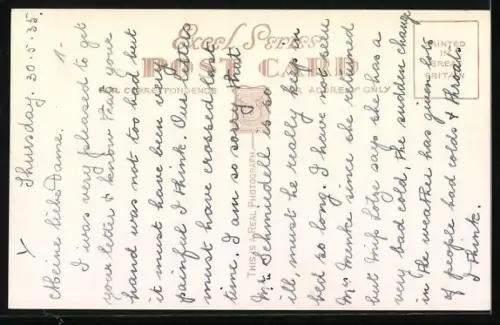 Thursday. 30.5.35.
1.
Meine liebe Dame.
I was very pleased to get
your letter & know that your
hand was not too bad but
it must have been very
painful I think. Our letters
must have crossed last
time. I am so sorry that
Mr. Schmudell is so
ill, must he really keep in
bed so long. I have not seen
Mrs Menke since she returned
but Miss Lotze says she has a
very bad cold, the sudden change
in the weather has given lots
of people bad colds & throats
I think.
Excel Series
POST CARD
FOR CORRESPONDENCE
FOR ADDRESS ONLY
PRINTED
IN
GREAT
BRITAIN
THIS IS A REAL PHOTOGRAPH